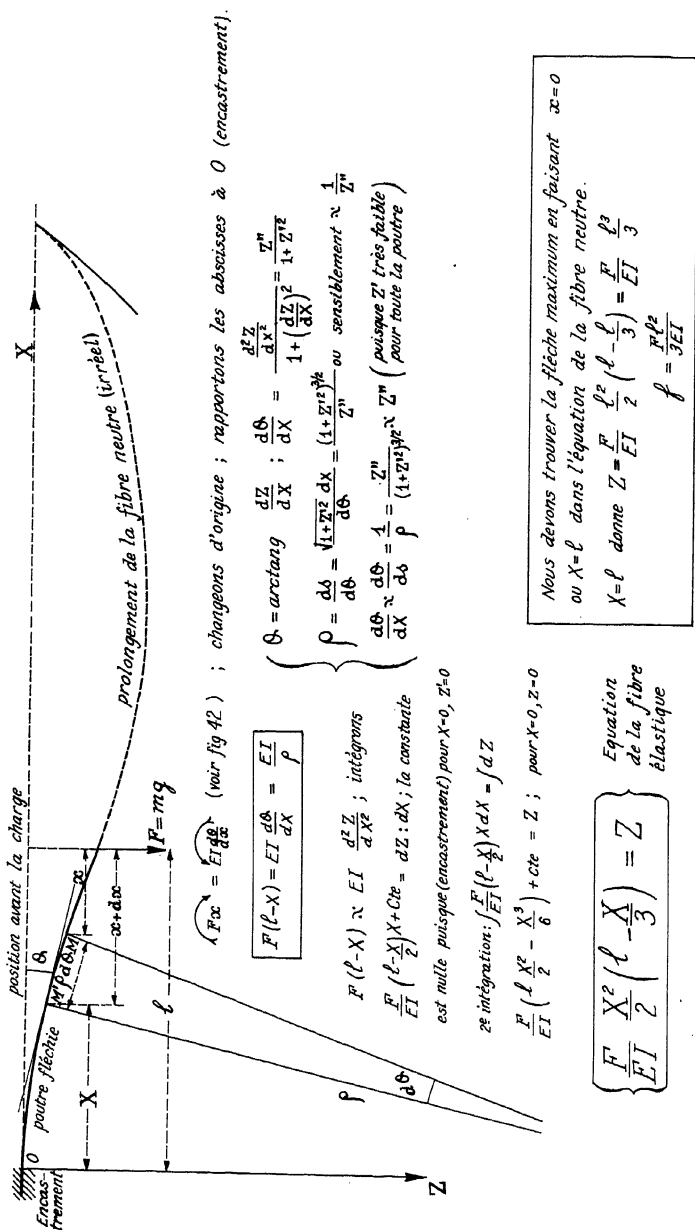 position avant la charge
X
Encas-
trement
O
poutre fléchie
M' ρdθ M
θ
x
x+dx
F=mg
X
l
prolongement de la fibre neutre (irréel)
ρ
dθ
Z
Fx = EI dθ/dx (voir fig 42) ; changeons d'origine ; rapportons les abscisses à O (encastrement).
F(l-X) = EI dθ/dX = EI/ρ
θ = arctang dZ/dX ; dθ/dX = (d²Z/dX²)/(1+(dZ/dX)²) = Z"/(1+Z'²)
ρ = ds/dθ = √(1+Z'²) dX/dθ = (1+Z'²)^3/2/Z" ou sensiblement ≈ 1/Z"
dθ/dX ≈ dθ/ds = 1/ρ = Z"/(1+Z'²)^3/2 ≈ Z" (puisque Z' très faible pour toute la poutre)
F(l-X) ≈ EI d²Z/dX² ; intégrons
F/EI (l-X/2)X+Cte = dZ : dX ; la constante
est nulle puisque (encastrement) pour X=0, Z'=0
2e intégration: ∫F/EI (l-X/2) X dX = ∫dZ
F/EI (l X²/2 - X³/6) + cte = Z ; pour X=0, z=0
F/EI X²/2 (l-X/3) = Z
Equation
de la fibre
élastique
Nous devons trouver la flèche maximum en faisant x=0
ou X=l dans l'équation de la fibre neutre.
X=l donne Z = F/EI l²/2 (l-l/3) = F/EI l³/3
f = Fl²/3EI